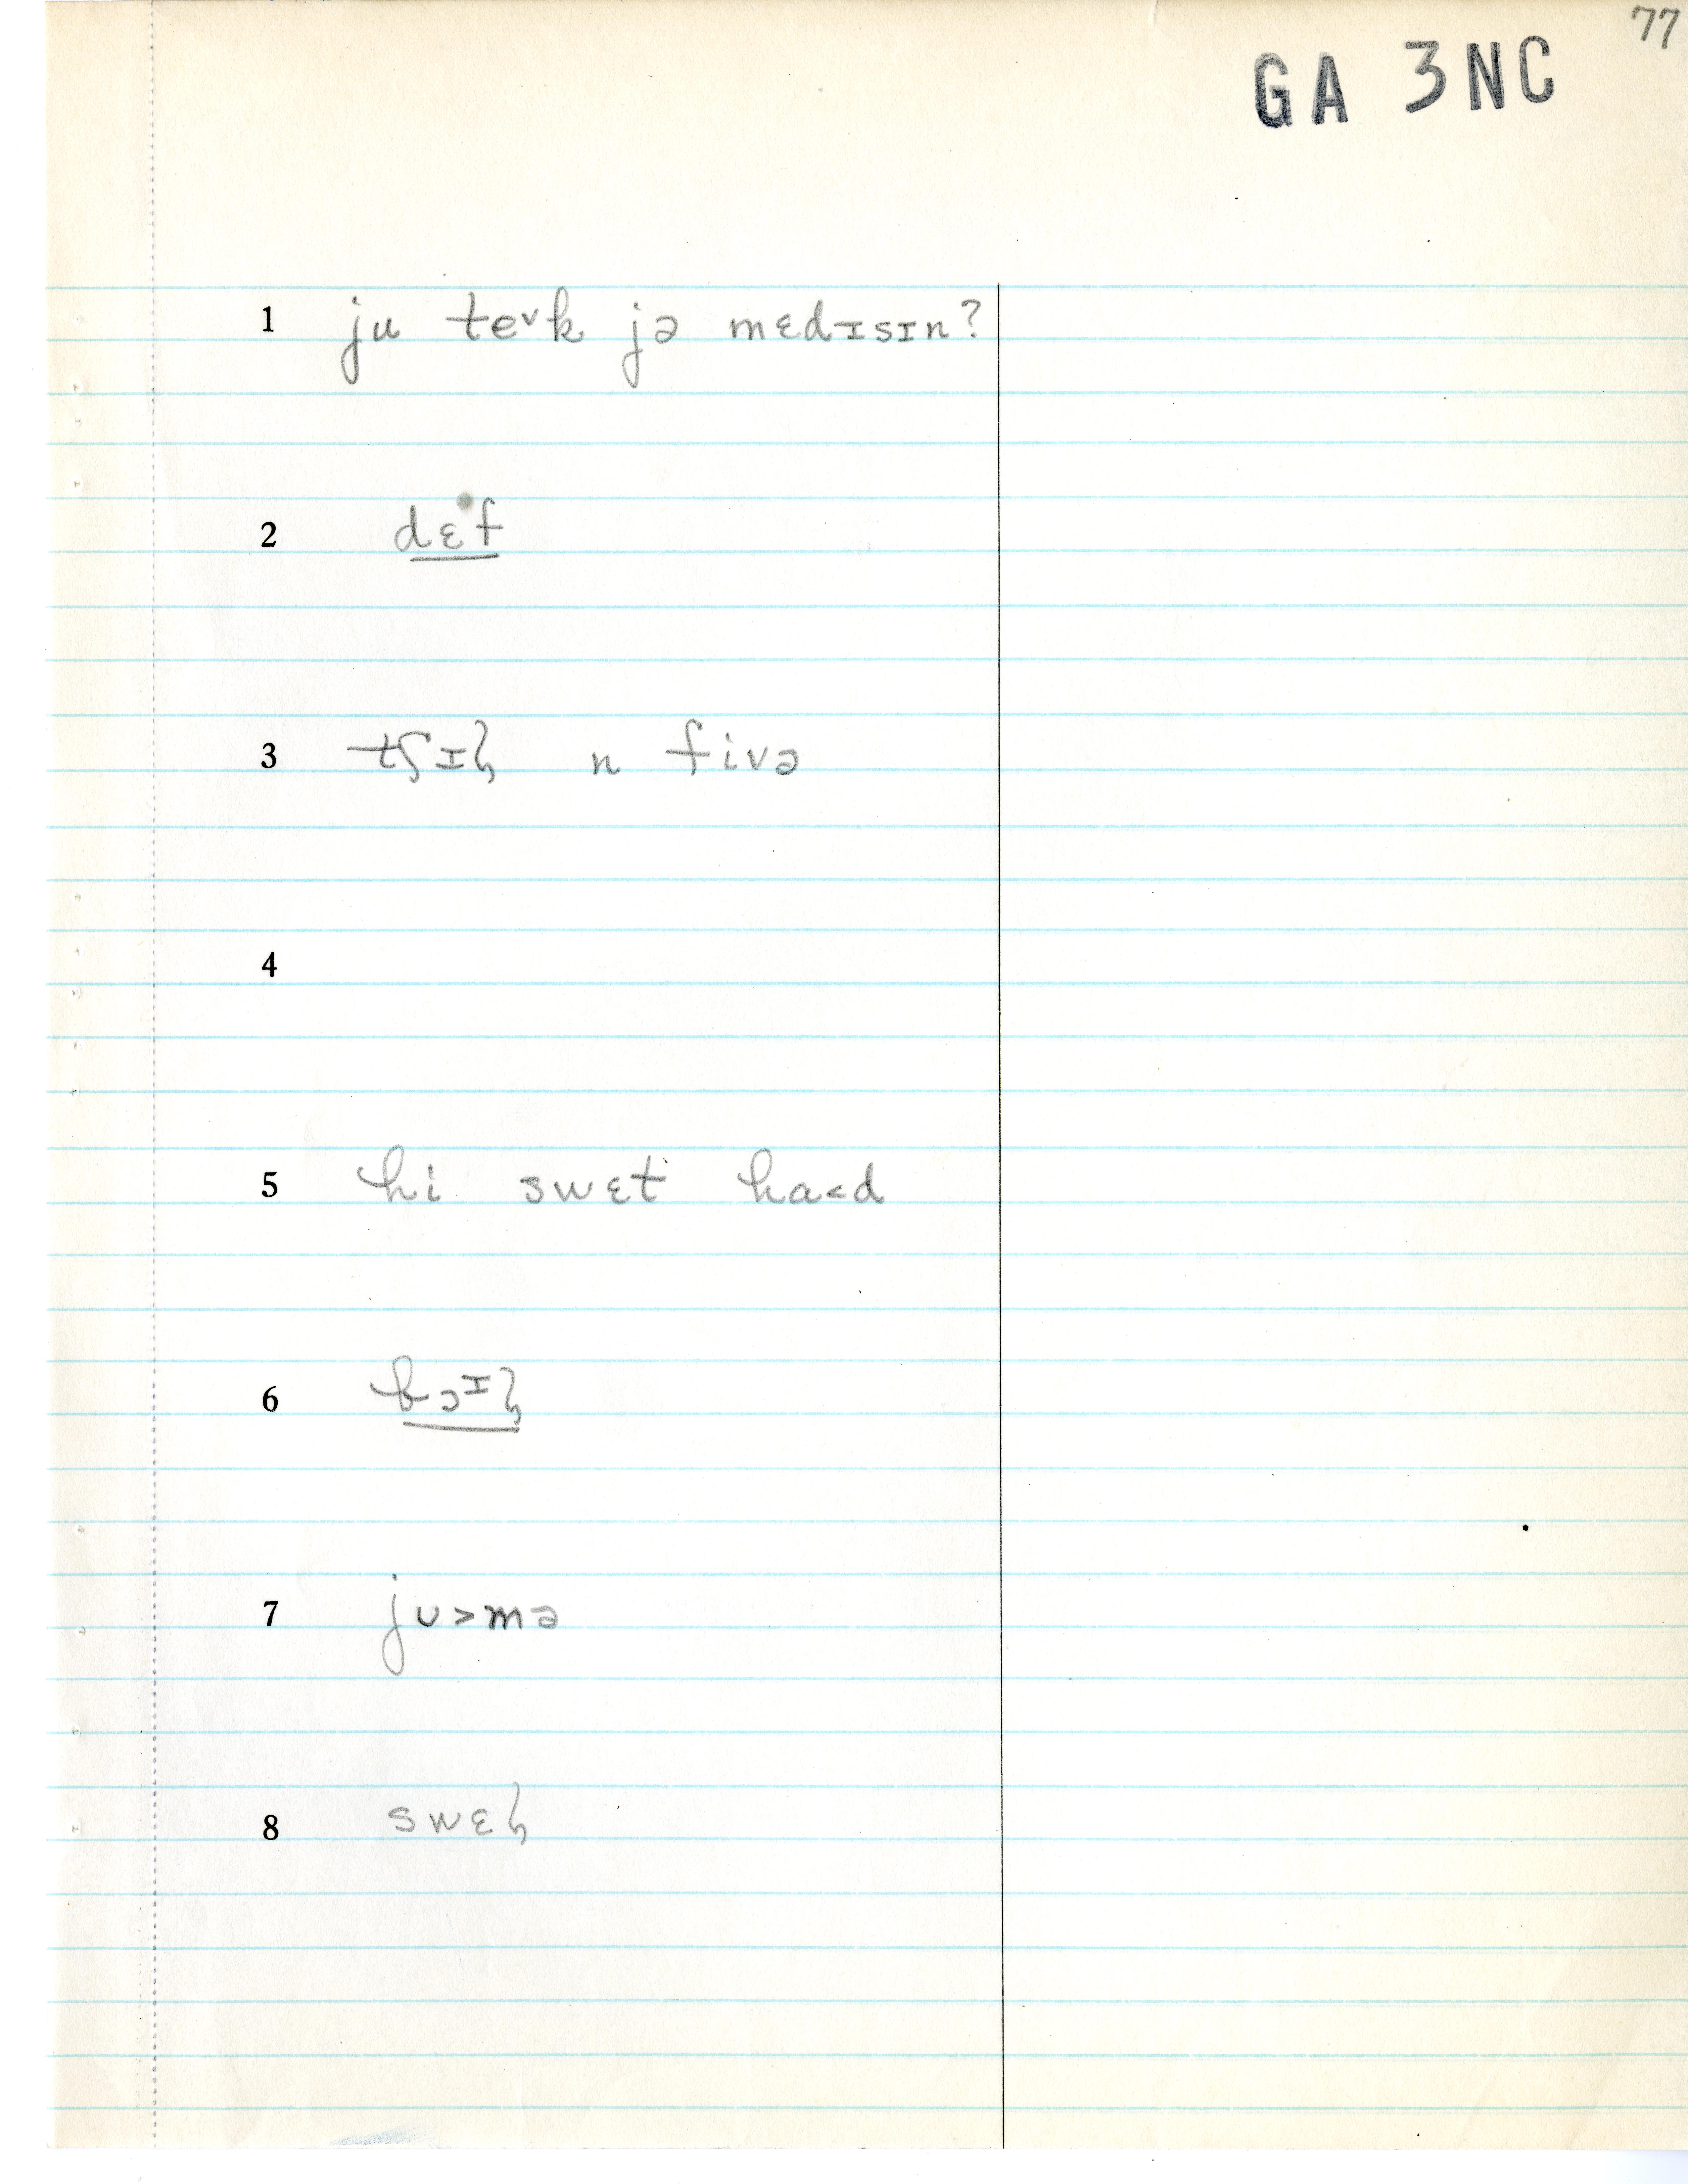 77
GA 3NC
1 ju te˅k jə mɛdɪsɪn?
2 dɛf
3 tʃɪl̡ n fivə
4
5 hi swɛt ha<d
6 bɔᶦl̡
7 jʊ>mə
8 swɛl̡